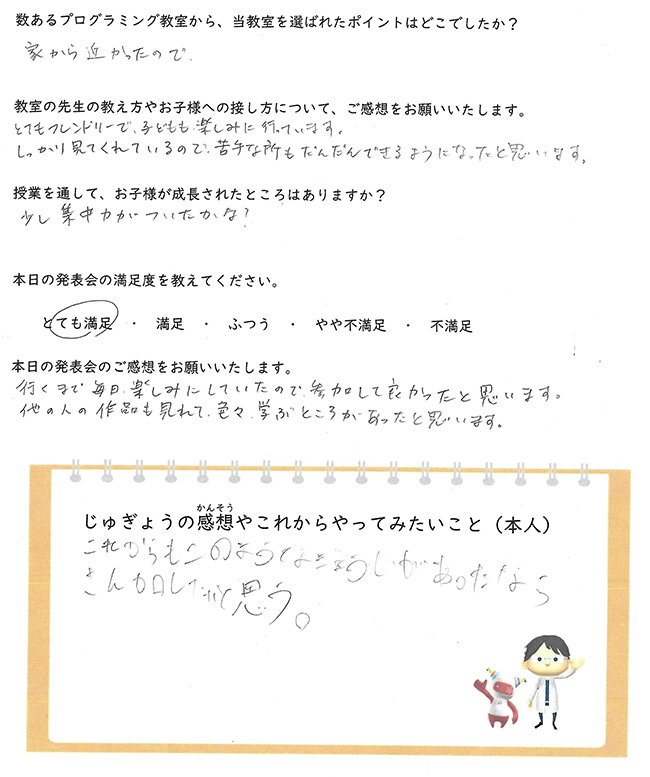 数あるプログラミング教室から、当教室を選ばれたポイントはどこでしたか？
家から近かったので、
教室の先生の教え方やお子様への接し方について、ご感想をお願いいたします。
とてもフレンドリーで、子どもも楽しみに行っています。
しっかり見てくれているので、苦手な所もだんだんできるようになったと思います。
授業を通して、お子様が成長されたところはありますか？
少し集中力がついたかな？
本日の発表会の満足度を教えてください。
とても満足 ・ 満足 ・ ふつう ・ やや不満足 ・ 不満足
本日の発表会のご感想をお願いいたします。
行くまで毎日、楽しみにしていたので、参加して良かったと思います。
他の人の作品も見れて、色々、学ぶところがあったと思います。
かんそう
じゅぎょうの感想やこれからやってみたいこと（本人）
これからもこのようなぎょうじがあったなら
さん加したいと思う。